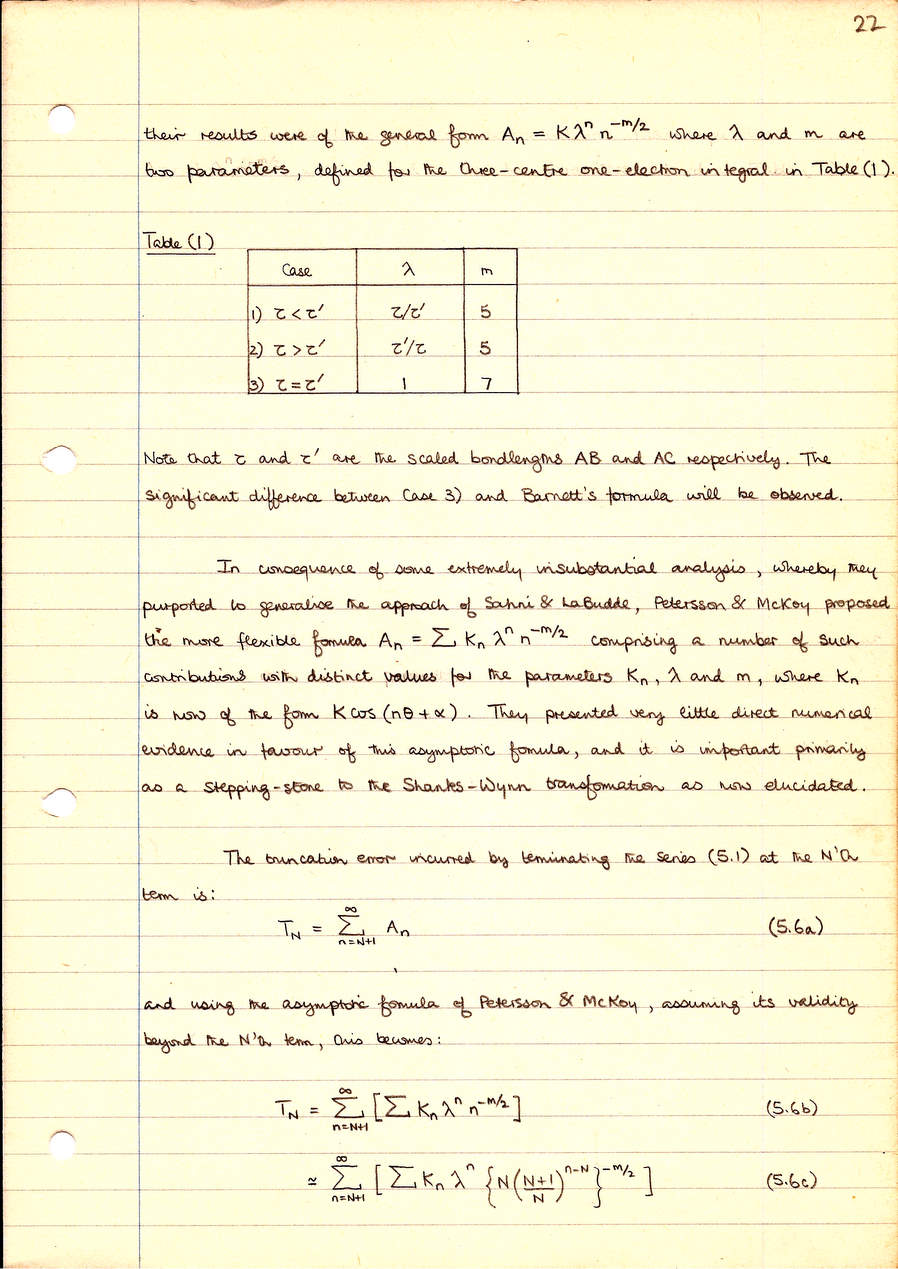 22
their results were of the general form Aₙ = Kλⁿ n^(-m/2) where λ and m are
two parameters, defined for the three-centre one-electron integral in Table (1).
Table (1)
Case λ m
1) τ < τ′ τ/τ′ 5
2) τ > τ′ τ′/τ 5
3) τ = τ′ 1 7
Note that τ and τ′ are the scaled bondlengths AB and AC respectively. The
significant difference between Case 3) and Barnett's formula will be observed.
In consequence of some extremely insubstantial analysis, whereby they
purported to generalise the approach of Sahni & LaBudde, Petersson & McKoy proposed
the more flexible formula Aₙ = Σ Kₙ λⁿ n^(-m/2) comprising a number of such
contributions with distinct values for the parameters Kₙ, λ and m, where Kₙ
is now of the form K cos (nθ + α). They presented very little direct numerical
evidence in favour of this asymptotic formula, and it is important primarily
as a stepping-stone to the Shanks-Wynn transformation as now elucidated.
The truncation error incurred by terminating the series (5.1) at the N'th
term is:
T_N = Σ_{n=N+1}^{∞} Aₙ (5.6a)
and using the asymptotic formula of Petersson & McKoy, assuming its validity
beyond the N'th term, this becomes:
T_N = Σ_{n=N+1}^{∞} [Σ Kₙ λⁿ n^(-m/2)] (5.6b)
≃ Σ_{n=N+1}^{∞} [Σ Kₙ λⁿ {N((N+1)/N)^(n-N)}^(-m/2)] (5.6c)